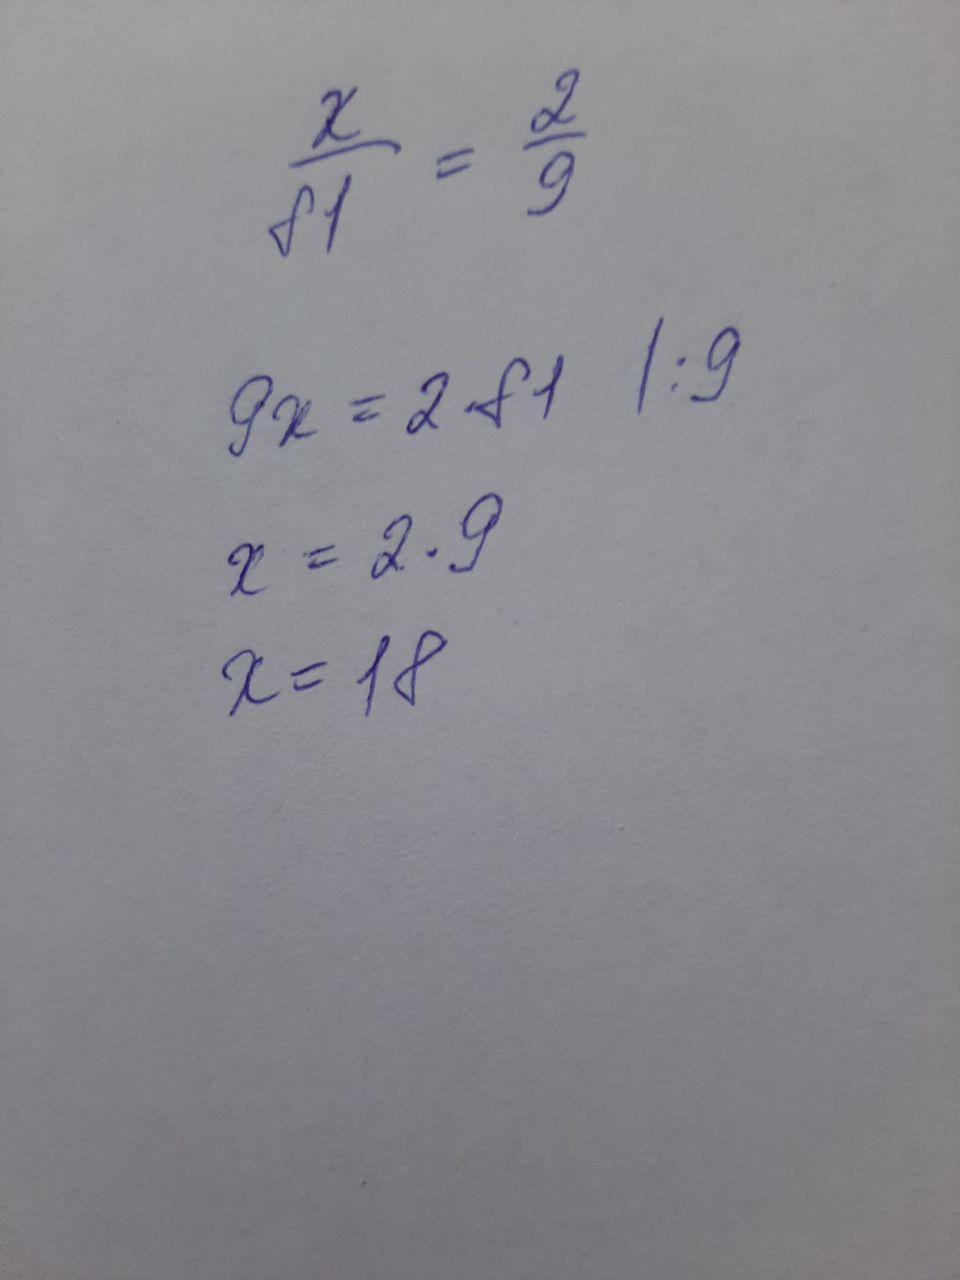 x/81 = 2/9
9x = 2·81 |:9
x = 2·9
x = 18